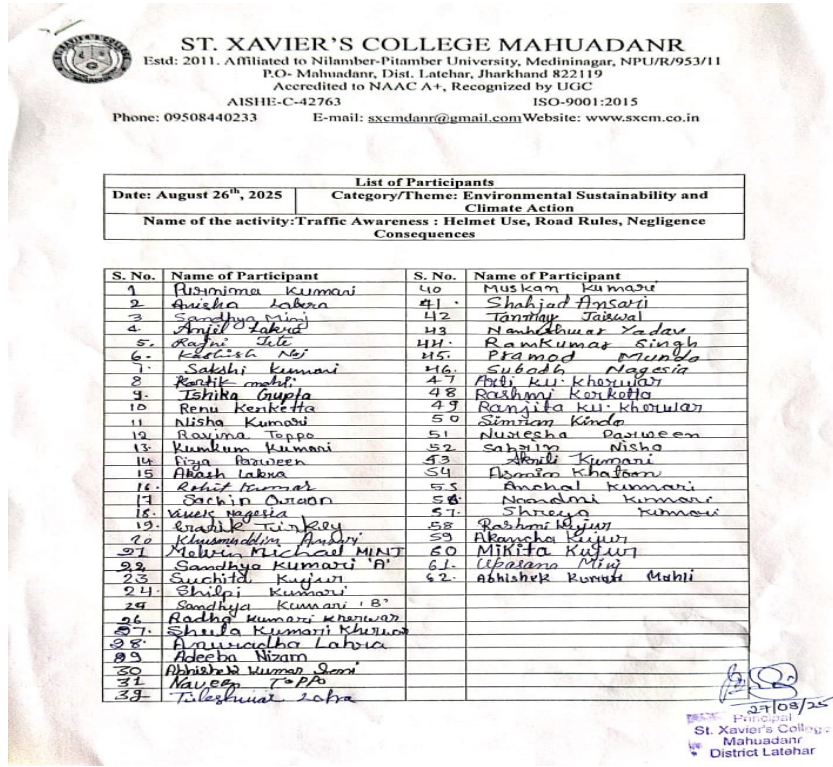 ST. XAVIER'S COLLEGE MAHUADANR
Estd: 2011. Affiliated to Nilamber-Pitamber University, Medininagar, NPU/R/953/11
P.O- Mahuadanr, Dist. Latehar, Jharkhand 822119
Accredited to NAAC A+, Recognized by UGC
AISHE-C-42763 ISO-9001:2015
Phone: 09508440233 E-mail: sxcmdanr@gmail.com Website: www.sxcm.co.in
List of Participants
Date: August 26th, 2025 Category/Theme: Environmental Sustainability and
Climate Action
Name of the activity:Traffic Awareness : Helmet Use, Road Rules, Negligence
Consequences
S. No. Name of Participant S. No. Name of Participant
1 Purnima Kumari 40 Muskan Kumari
2 Anisha Lakra 41. Shahjad Ansari
3 Sandhya Minj 42 Tanmay Jaiswal
4. Anjel Lakra 43 Yadav
5. Rajni Tete 44. RamKumar Singh
6. 45. Pramod Munda
7. Sakshi Kumari 46. Subodh Nagesia
8 Kartik mahli 47 Arti Ku. Kherwar
9. Ishika Gupta 48 Rashmi Kerketta
10 Renu Kerketta 49 Ranjita Ku. Kherwar
11 Nisha Kumari 50 Simran Kindo
12 Ravina Toppo 51 Parween
13. Kumkum Kumari 52 Nisha
14 Fiza Parween 53 Kumari
15 Akash Lakra 54 Khatoon
16. Rohit Kumar 55 Anchal Kumari
17 Sachin Oraon 56. Kumari
18. Vivek Nagesia 57. Shreya Kumari
19. Tirkey 58 Rashmi Kujur
20 Khusmuddin Ansari 59 Akancha Kujur
21 Melwin Michael MINJ 60 Mikita Kujur
22 Sandhya Kumari 'A' 61. Upasana Minj
23 Suchita Kujur 62. Abhishek Kumar Mahli
24. Shilpi Kumari
25 Sandhya Kumari 'B'
26 Radha Kumari Kherwar
27. Sheila Kumari Kherwar
28. Anuradha Lakra
29 Adeeba Nizam
30 Abhishek Kumar Soni
31 Naveen TOPPO
39
27/08/25
Principal
St. Xavier's College
Mahuadanr
District Latehar